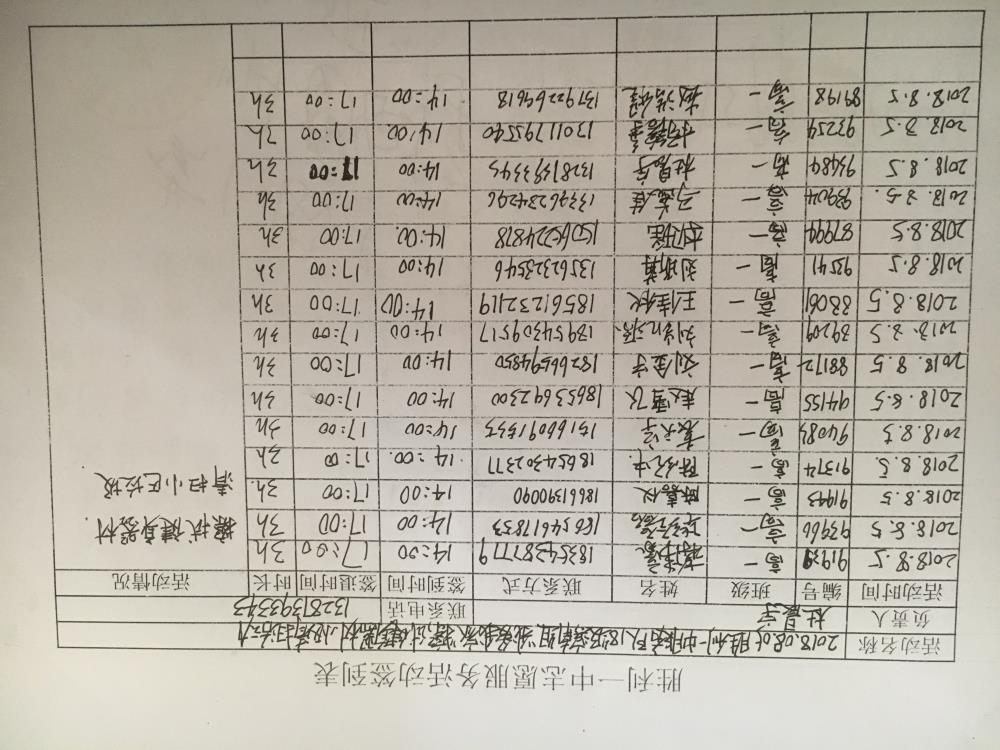 胜利一中志愿服务活动签到表
活动名称 胜利一中
负责人 杜昌宇 联系电话 13281393343
活动时间 编号 班级 姓名 联系方式 签到时间 签退时间 时长 活动情况
2018.8.5 高一 18354238779 14:00 17:00 3h 擦拭健身器材
2018.8.5 93966 高一 16654617833 14:00 17:00 3h 清扫小区垃圾
2018.8.5 91943 高一 陈嘉仪 18661390090 14:00 17:00 3h
2018.8.5 91374 高一 18654302377 14:00 17:00 3h
2018.8.5 94084 高一 14:00 17:00 3h
2018.8.5 94155 高一 赵雪飞 18653692300 14:00 17:00 3h
2018.8.5 88172 高一 刘金宇 18266594850 14:00 17:00 3h
2018.8.5 39209 高一 13954309517 14:00 17:00 3h
2018.8.5 33061 高一 王佳秋 18561232119 14:00 17:00 3h
2018.8.5 93541 高一 13562323546 14:00 17:00 3h
2018.8.5 87994 高一 14:00 17:00 3h
2018.8.5 93904 高一 13396234296 14:00 17:00 3h
2018.8.5 93484 高一 杜昌宇 13281393343 14:00 17:00 3h
2018.8.5 93254 高一 13011795540 14:00 17:00 3h
2018.8.5 89198 高一 13792269618 14:00 17:00 3h